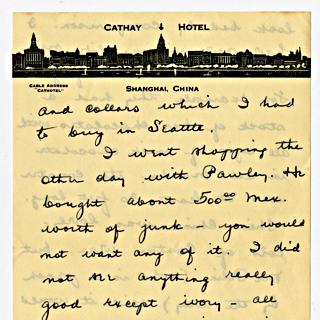 CATHAY HOTEL
CABLE ADDRESS
"CATHOTEL"
SHANGHAI, CHINA
and collars which I had
to buy in Seattle.
I went shopping the
other day with Pawley. He
bought about 500⁰⁰ Mex.
worth of junk - you would
not want any of it. I did
not see anything really
good except ivory - all